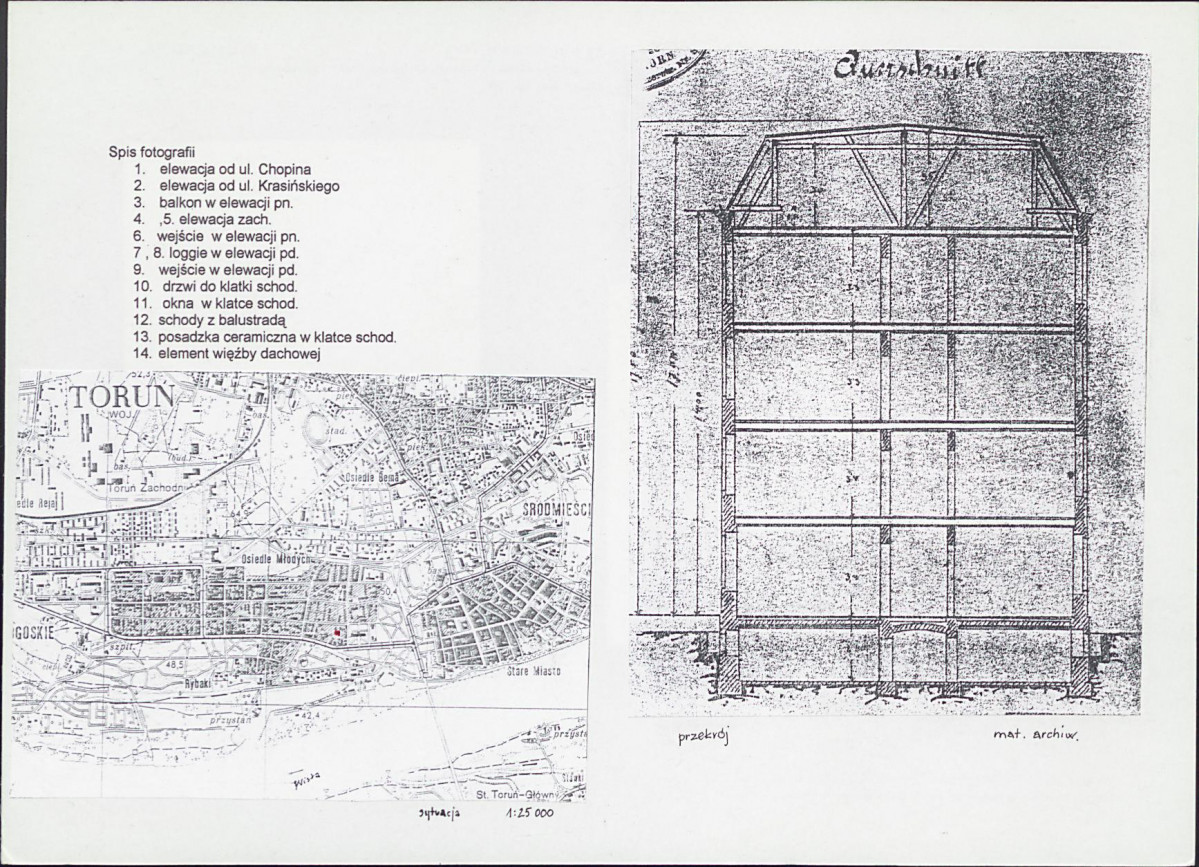 Spis fotografii
1. elewacja od ul. Chopina
2. elewacja od ul. Krasińskiego
3. balkon w elewacji pn.
4. ,5. elewacja zach.
6. wejście w elewacji pn.
7 , 8. loggie w elewacji pd.
9. wejście w elewacji pd.
10. drzwi do klatki schod.
11. okna w klatce schod.
12. schody z balustradą
13. posadzka ceramiczna w klatce schod.
14. element więźby dachowej
TORUŃ
WOJ.
52,3
stad.
bas.
Osiedle Bema
Toruń Zachodni
ŚRÓDMIEŚCI
Osiedle Młodych
GOSKIE
szpit.
48,5
Rybaki
Stare Miasto
przystań
42,4
przysta
Wisła
St. Toruń-Główny
sytuacja 1:25 000
Querschnitt
przekrój
mat. archiw.